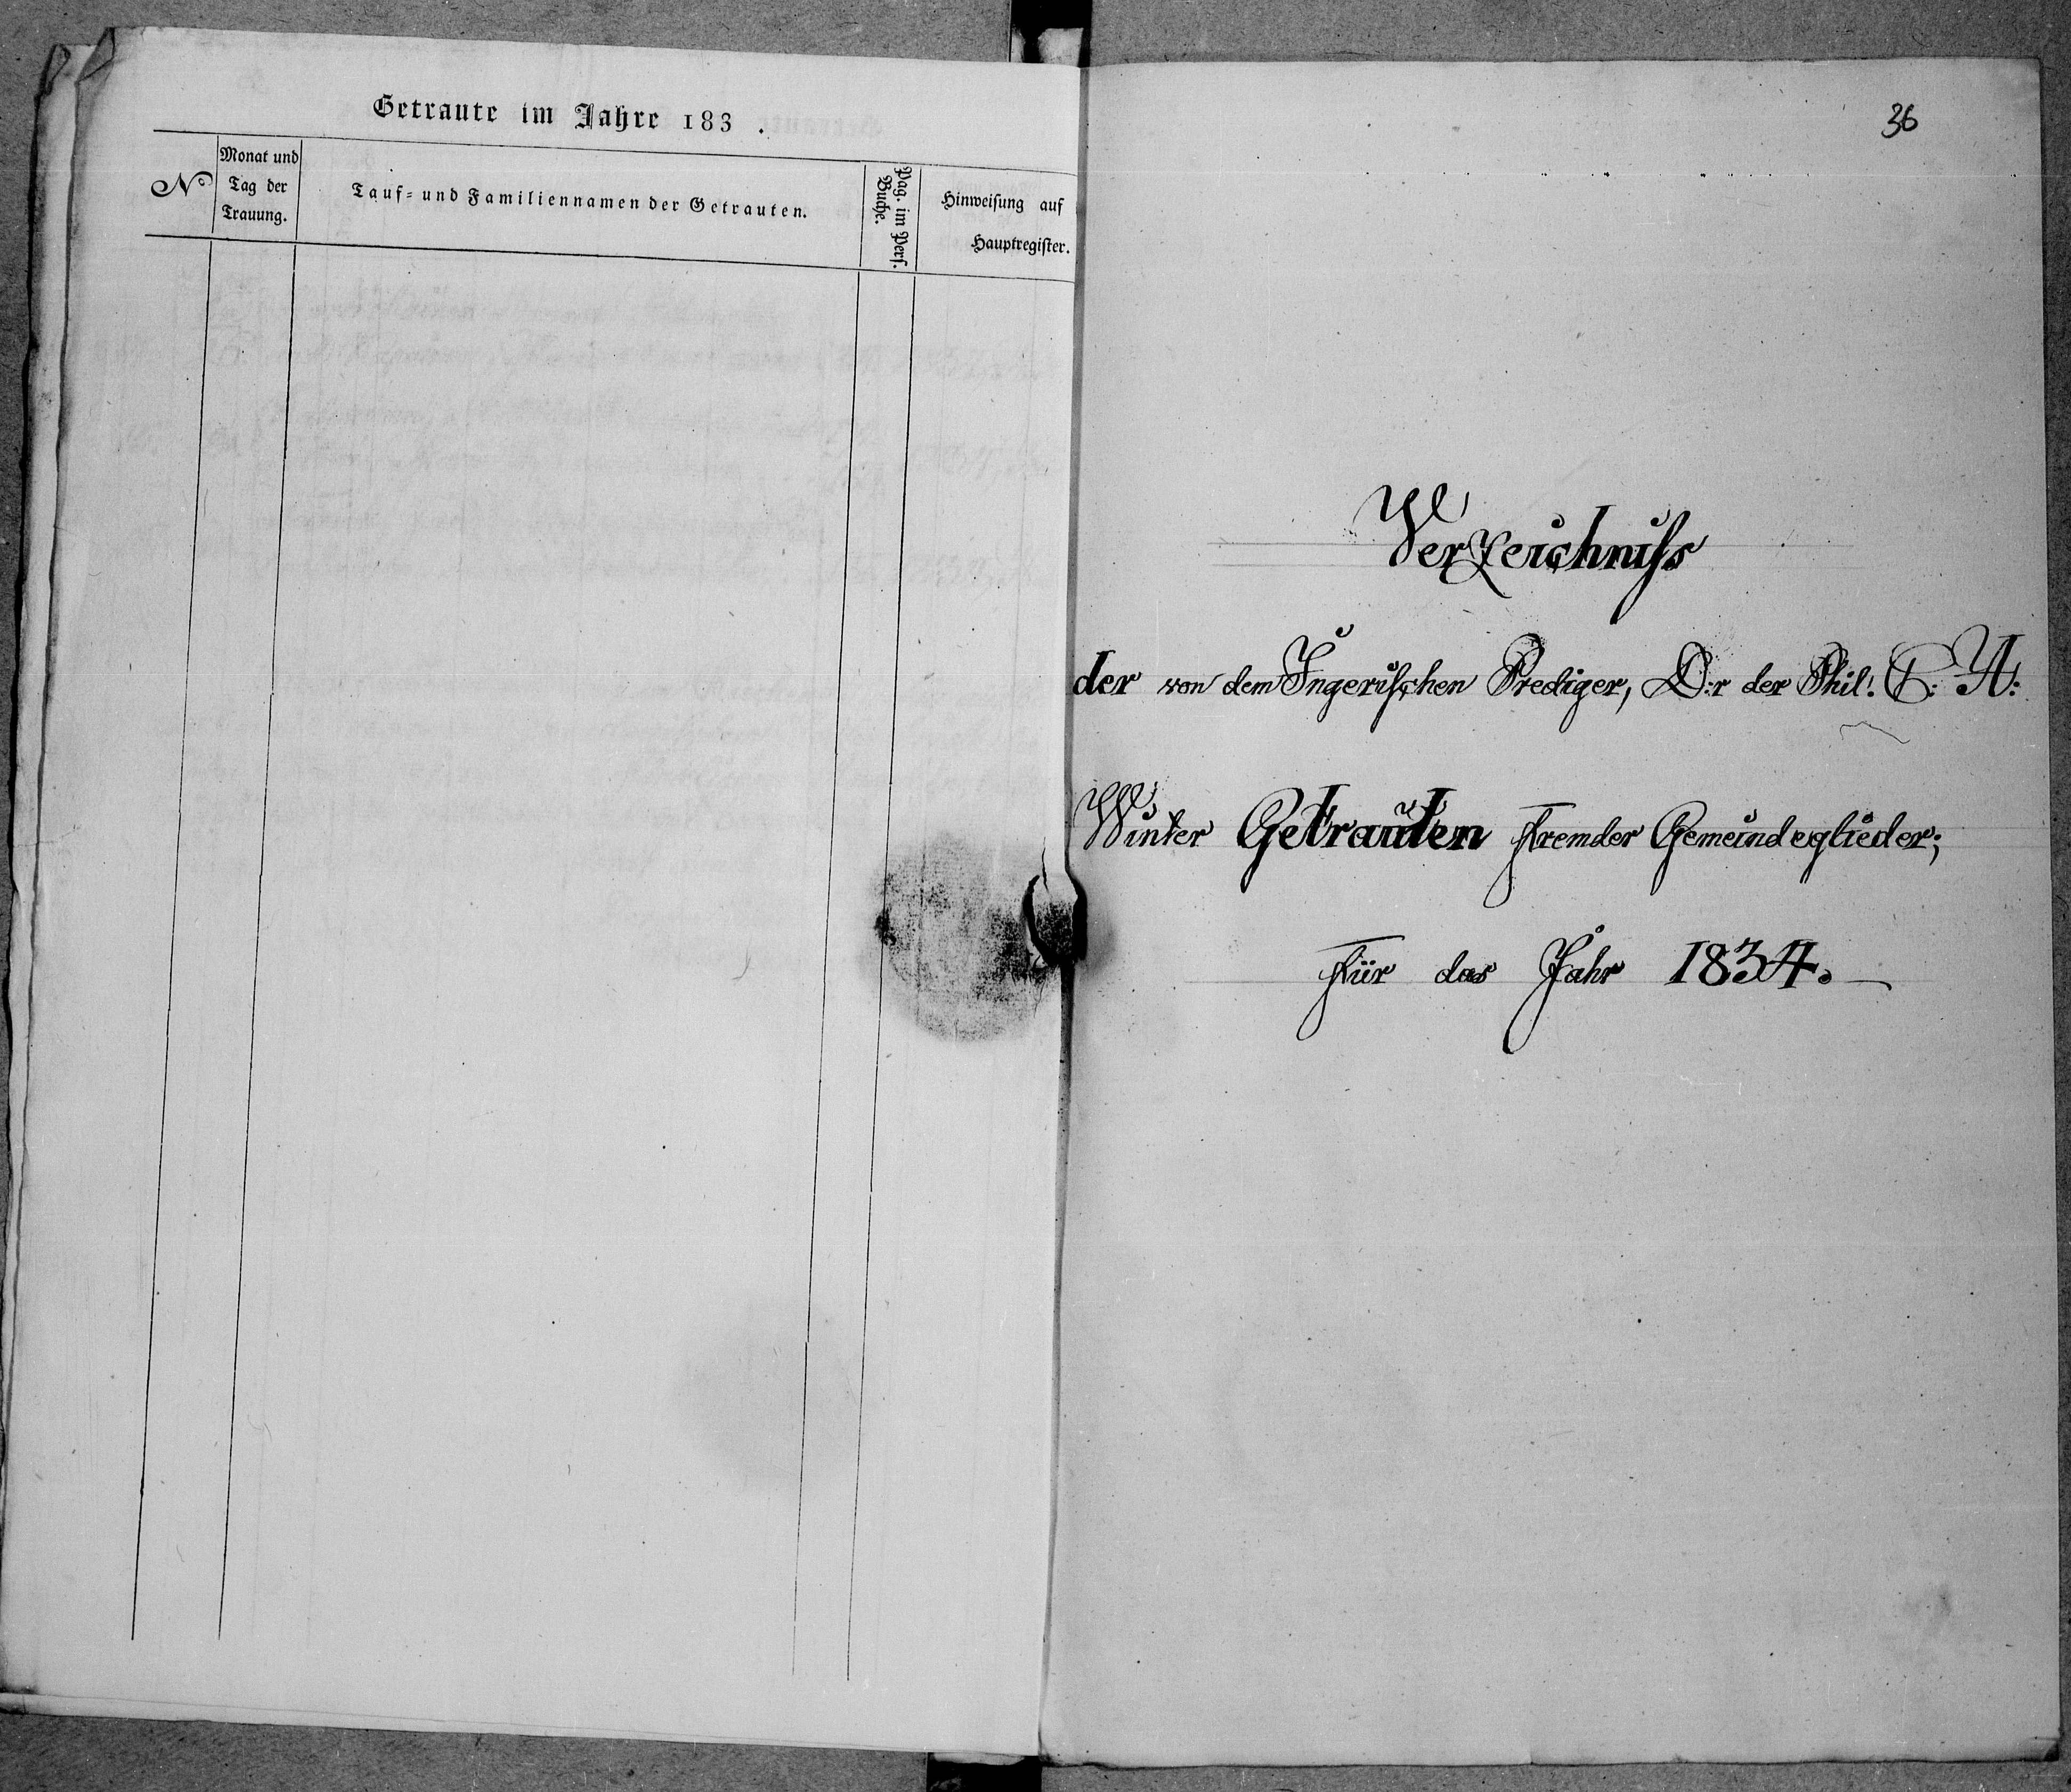 Getraute im Jahre 183 .
No
Monat und
Tag der
Trauung.
Tauf- und Familiennamen der Getrauten.
Pag. im Pers.
Buche.
Hinweisung auf
Hauptregister.
36
Verzeichniss
der von dem Ingerischen Prediger, D:r der Phil:
Winter Getrauten fremder Gemeindeglieder;
für das Jahr 1834. —